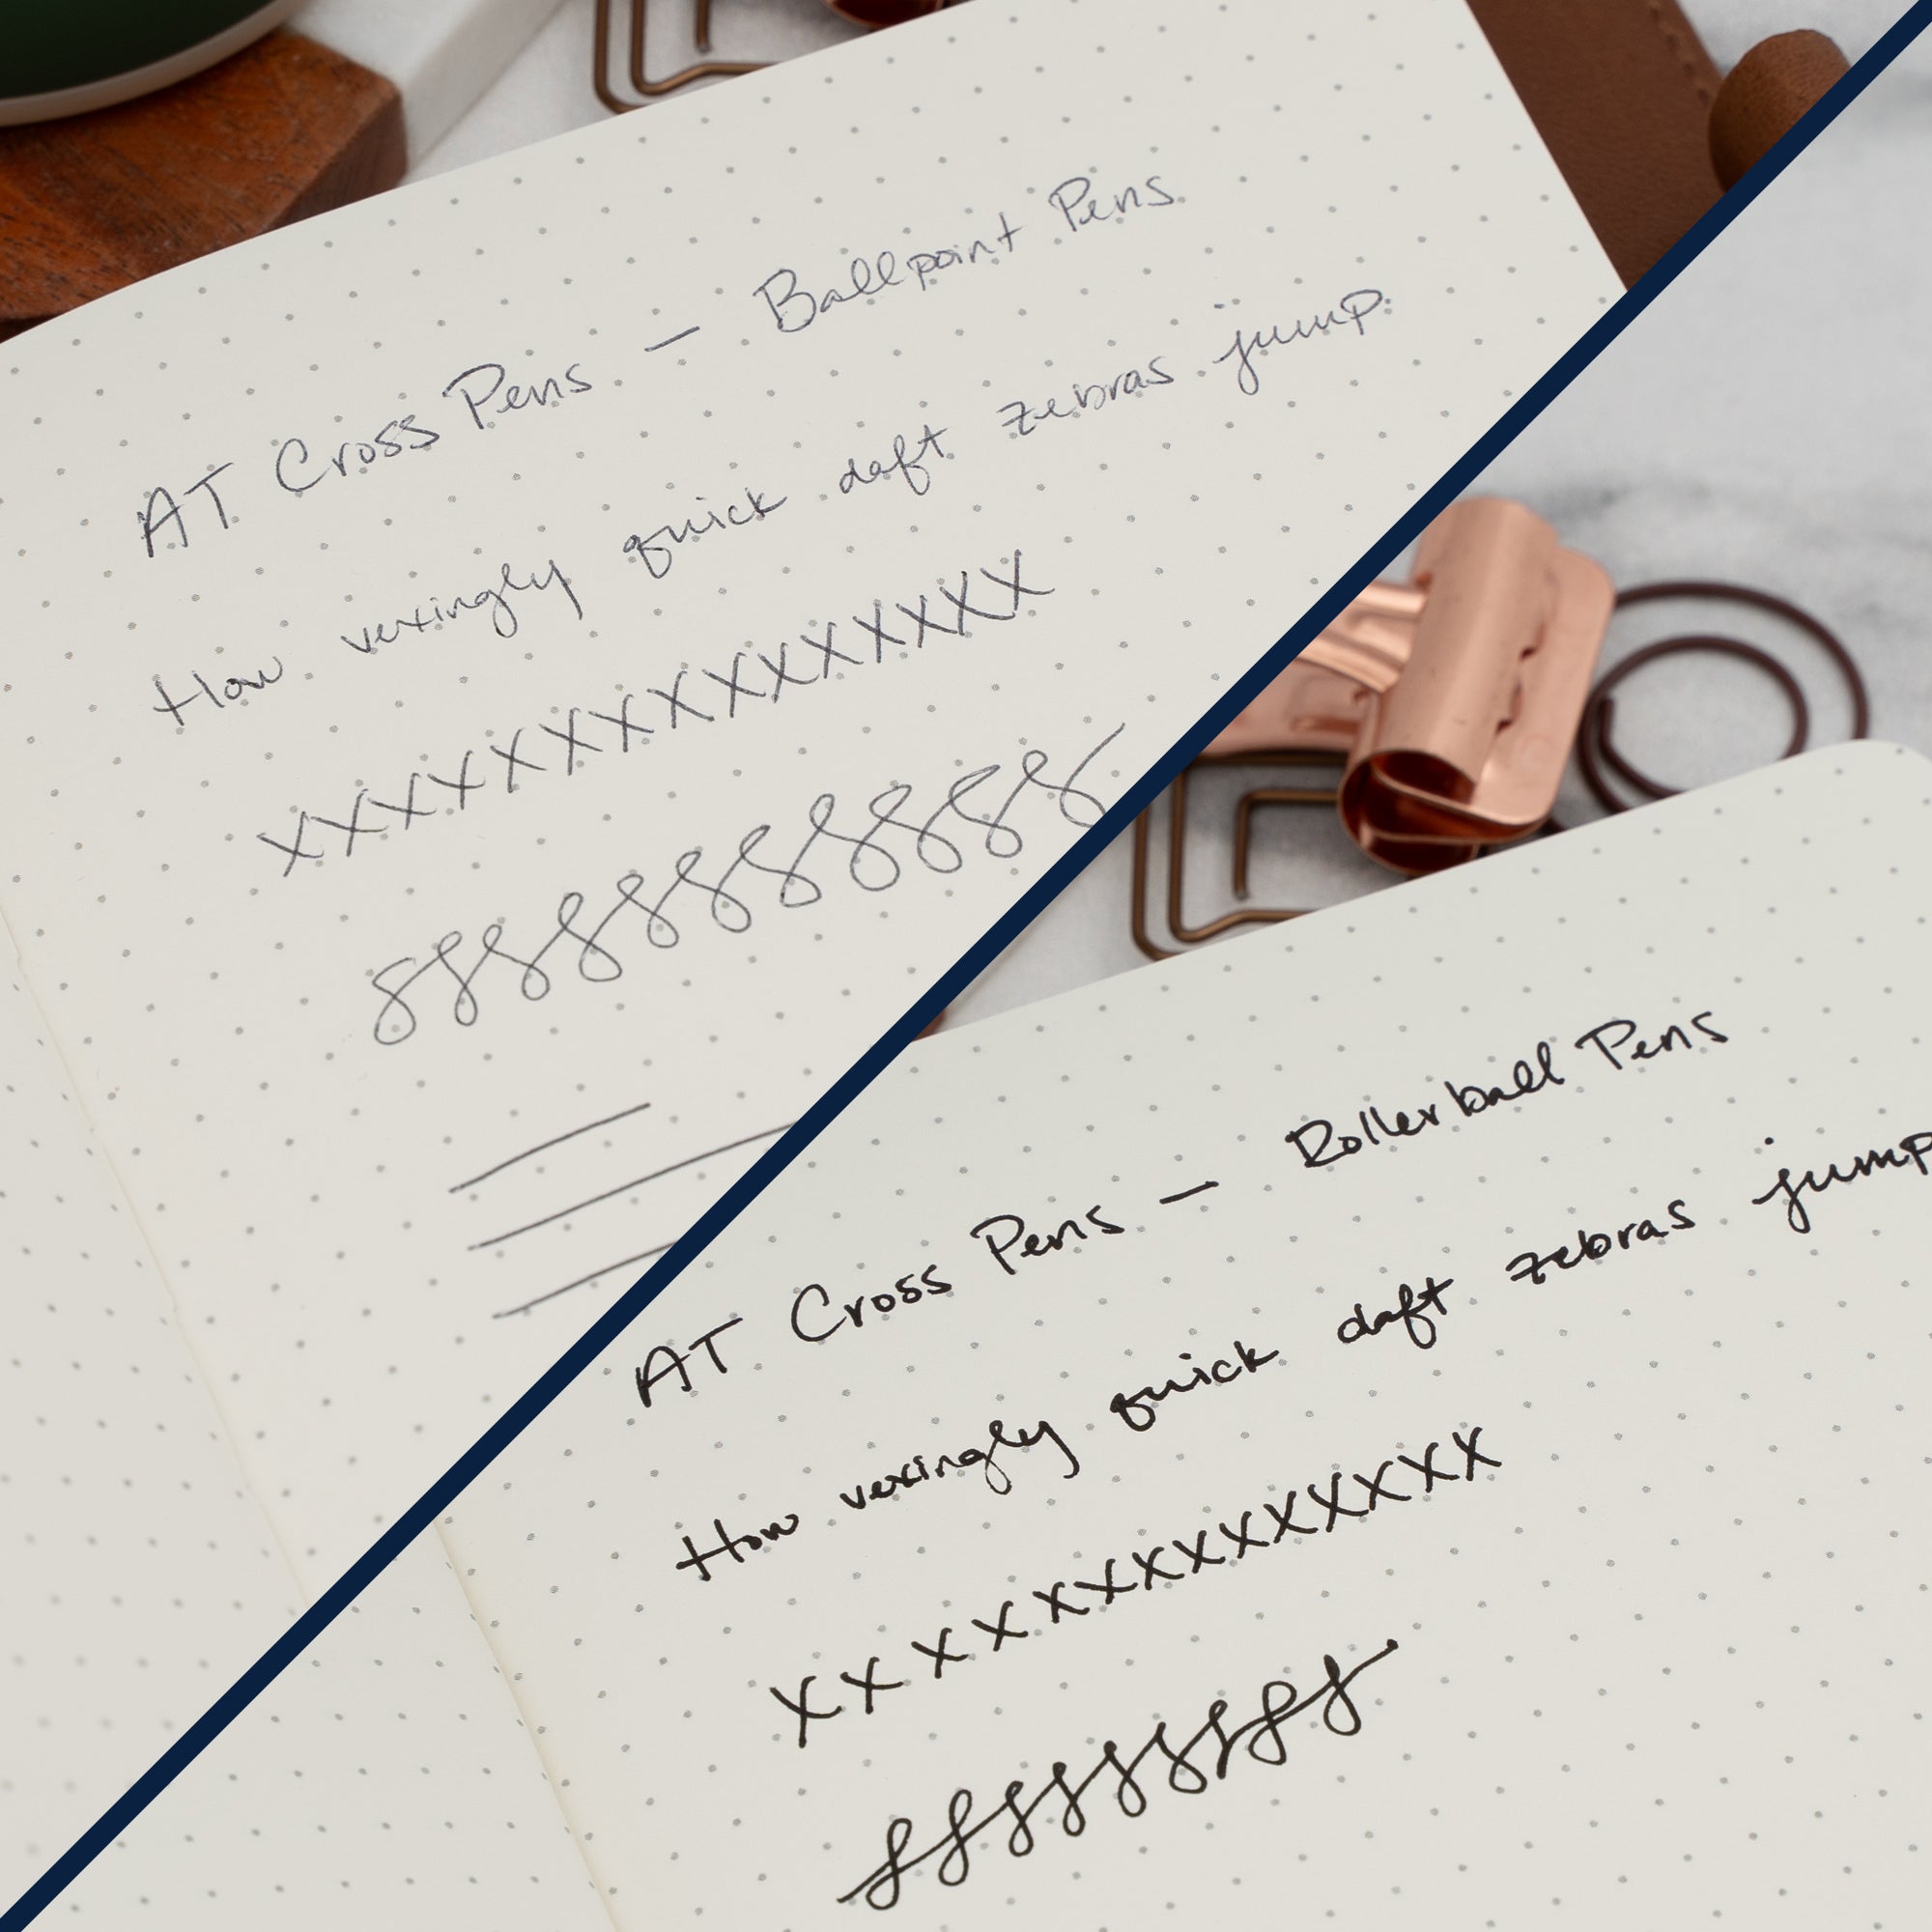 AT Cross Pens — Ballpoint Pens
How vexingly quick daft zebras jump
XXXXXXXXXXXXXXX
AT Cross Pens — Rollerball Pens
How vexingly quick daft zebras jump
XXXXXXXXXXXXXX